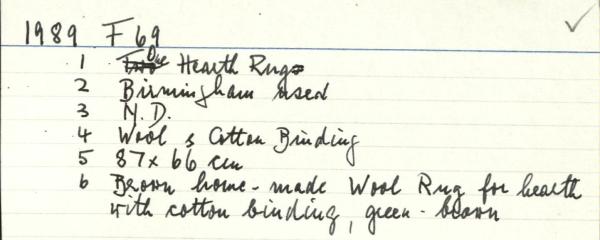 1989 F69
1 One Hearth Rug
2 Birmingham used
3 N.D.
4 Wool & Cotton Binding
5 87 x 66 cm
6 Brown home-made Wool Rug for hearth
with cotton binding, green-brown